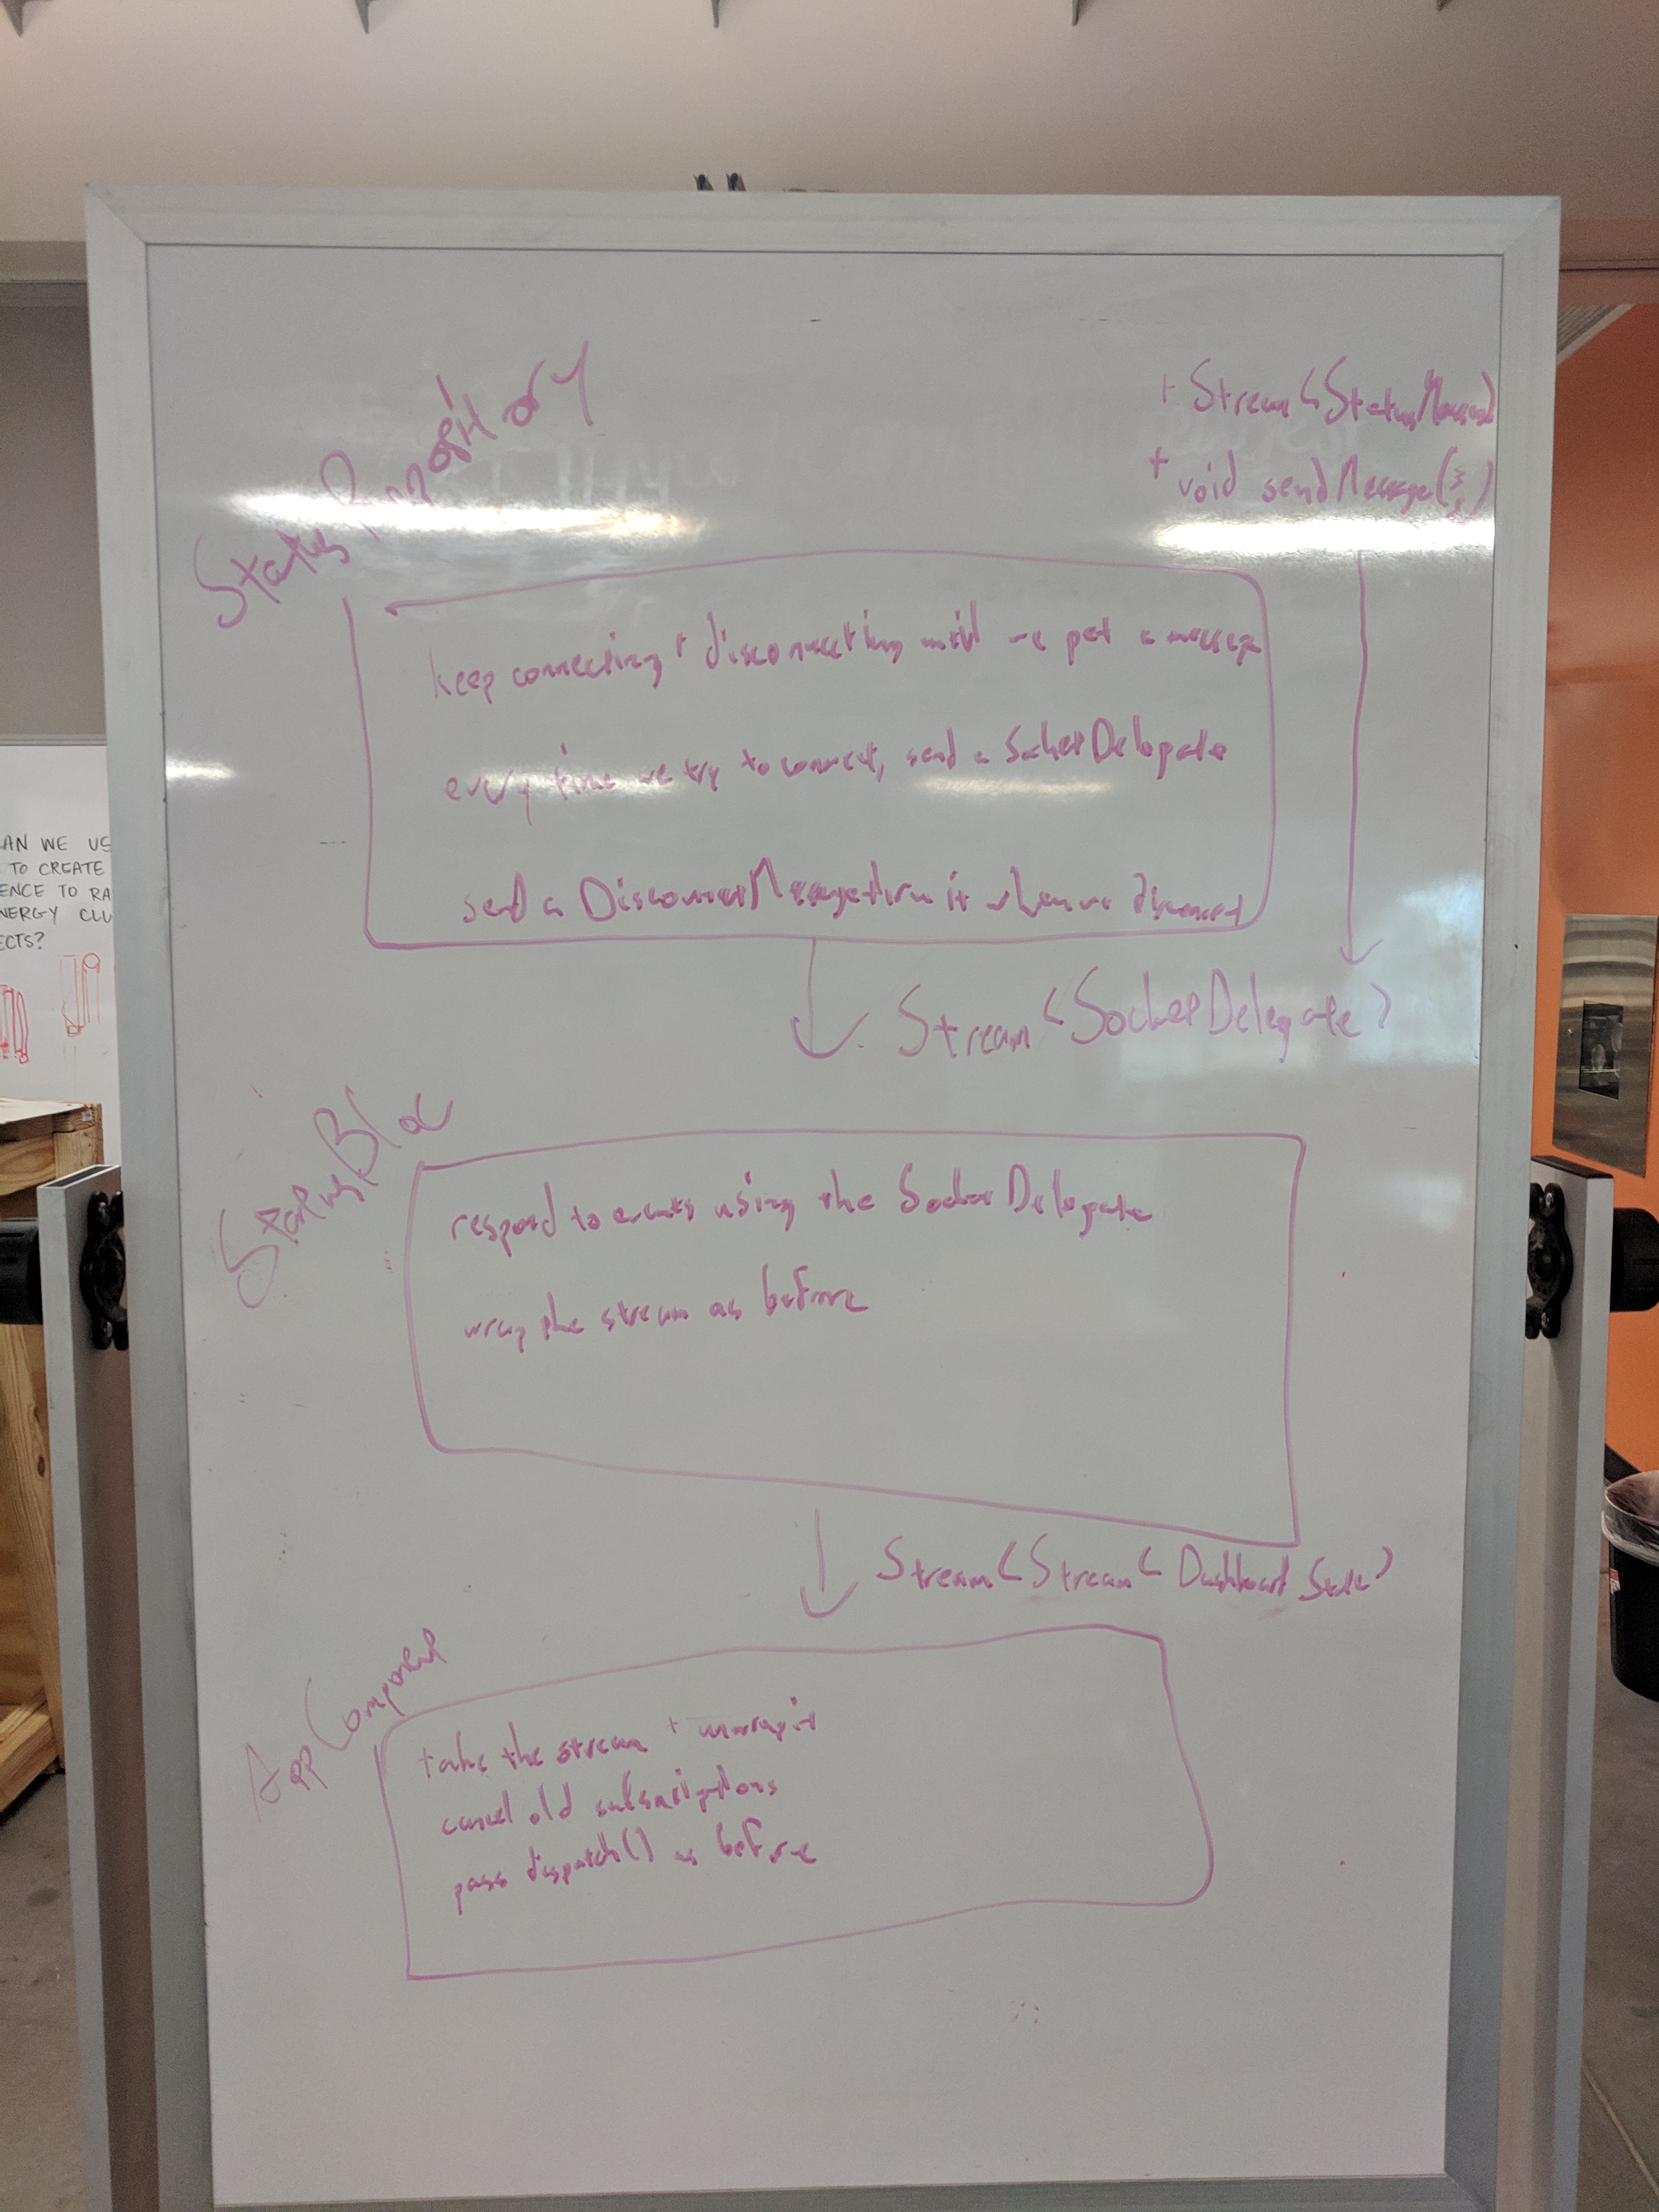 StatusRepository
+ Stream<StatusMessage>
+ void sendMessage(
keep connecting + disconnecting until we get a message
every time we try to connect, send a SocketDelegate
send a DisconnectMessage thru it when we disconnect
Stream<SocketDelegate>
StatusBloc
respond to events using the SocketDelegate
wrap the stream as before
Stream<Stream<DashboardState>
AppComponent
take the stream + unwrap it
cancel old subscriptions
pass dispatch() as before
AN WE US
TO CREATE
ENCE TO RA
NERGY CLU
ECTS?